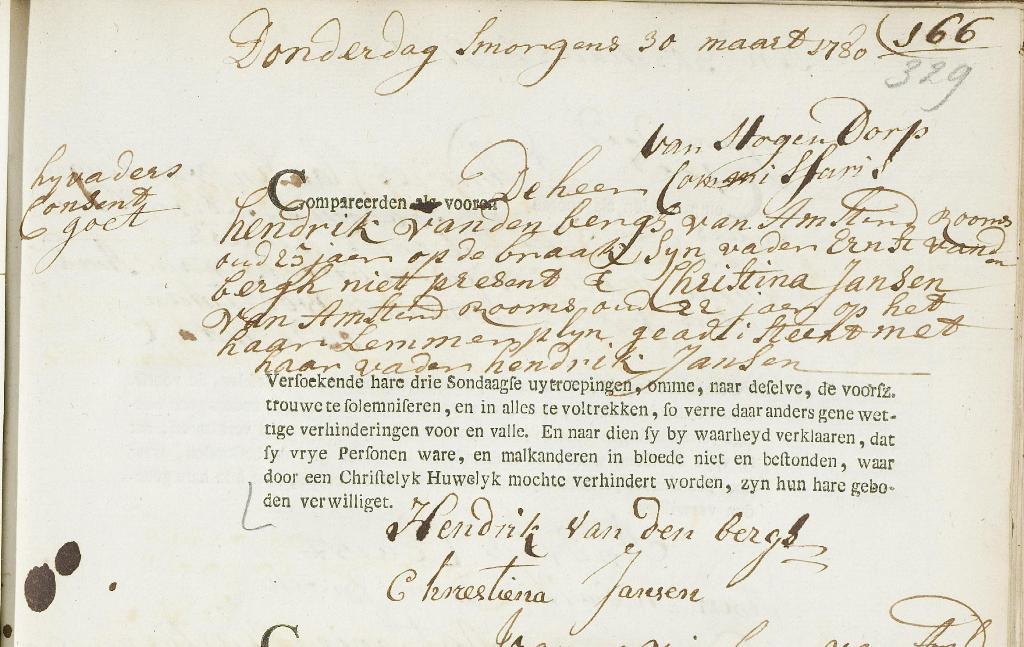 Donderdag Smorgens 30 maart 1780 (166
329
van Hogen Dorp
De heer Commissaris
hy vaders
Consent
goet
Compareerden als vooren
hendrik van den bergh van Amsterd Rooms
oud 25 jaer op de braak Syn vader Ernst vanden
bergh niet present & Christina Jansen
van Amsterd Rooms oud 22 jaer op het
haarlemmer plyn geadsisteert met
haar vader hendrik Jansen
Verſoekende hare drie Sondaagſe uytroepingen, omme, naar deſelve, de voorſz.
trouwe te ſolemniſeren, en in alles te voltrekken, ſo verre daar anders gene wet-
tige verhinderingen voor en valle. En naar dien ſy by waarheyd verklaaren, dat
ſy vrye Perſonen ware, en malkanderen in bloede niet en beſtonden, waar
door een Chriſtelyk Huwelyk mochte verhindert worden, zyn hun hare gebo-
den verwilliget.
Hendrik van den bergh
Chrestiena Jansen
C